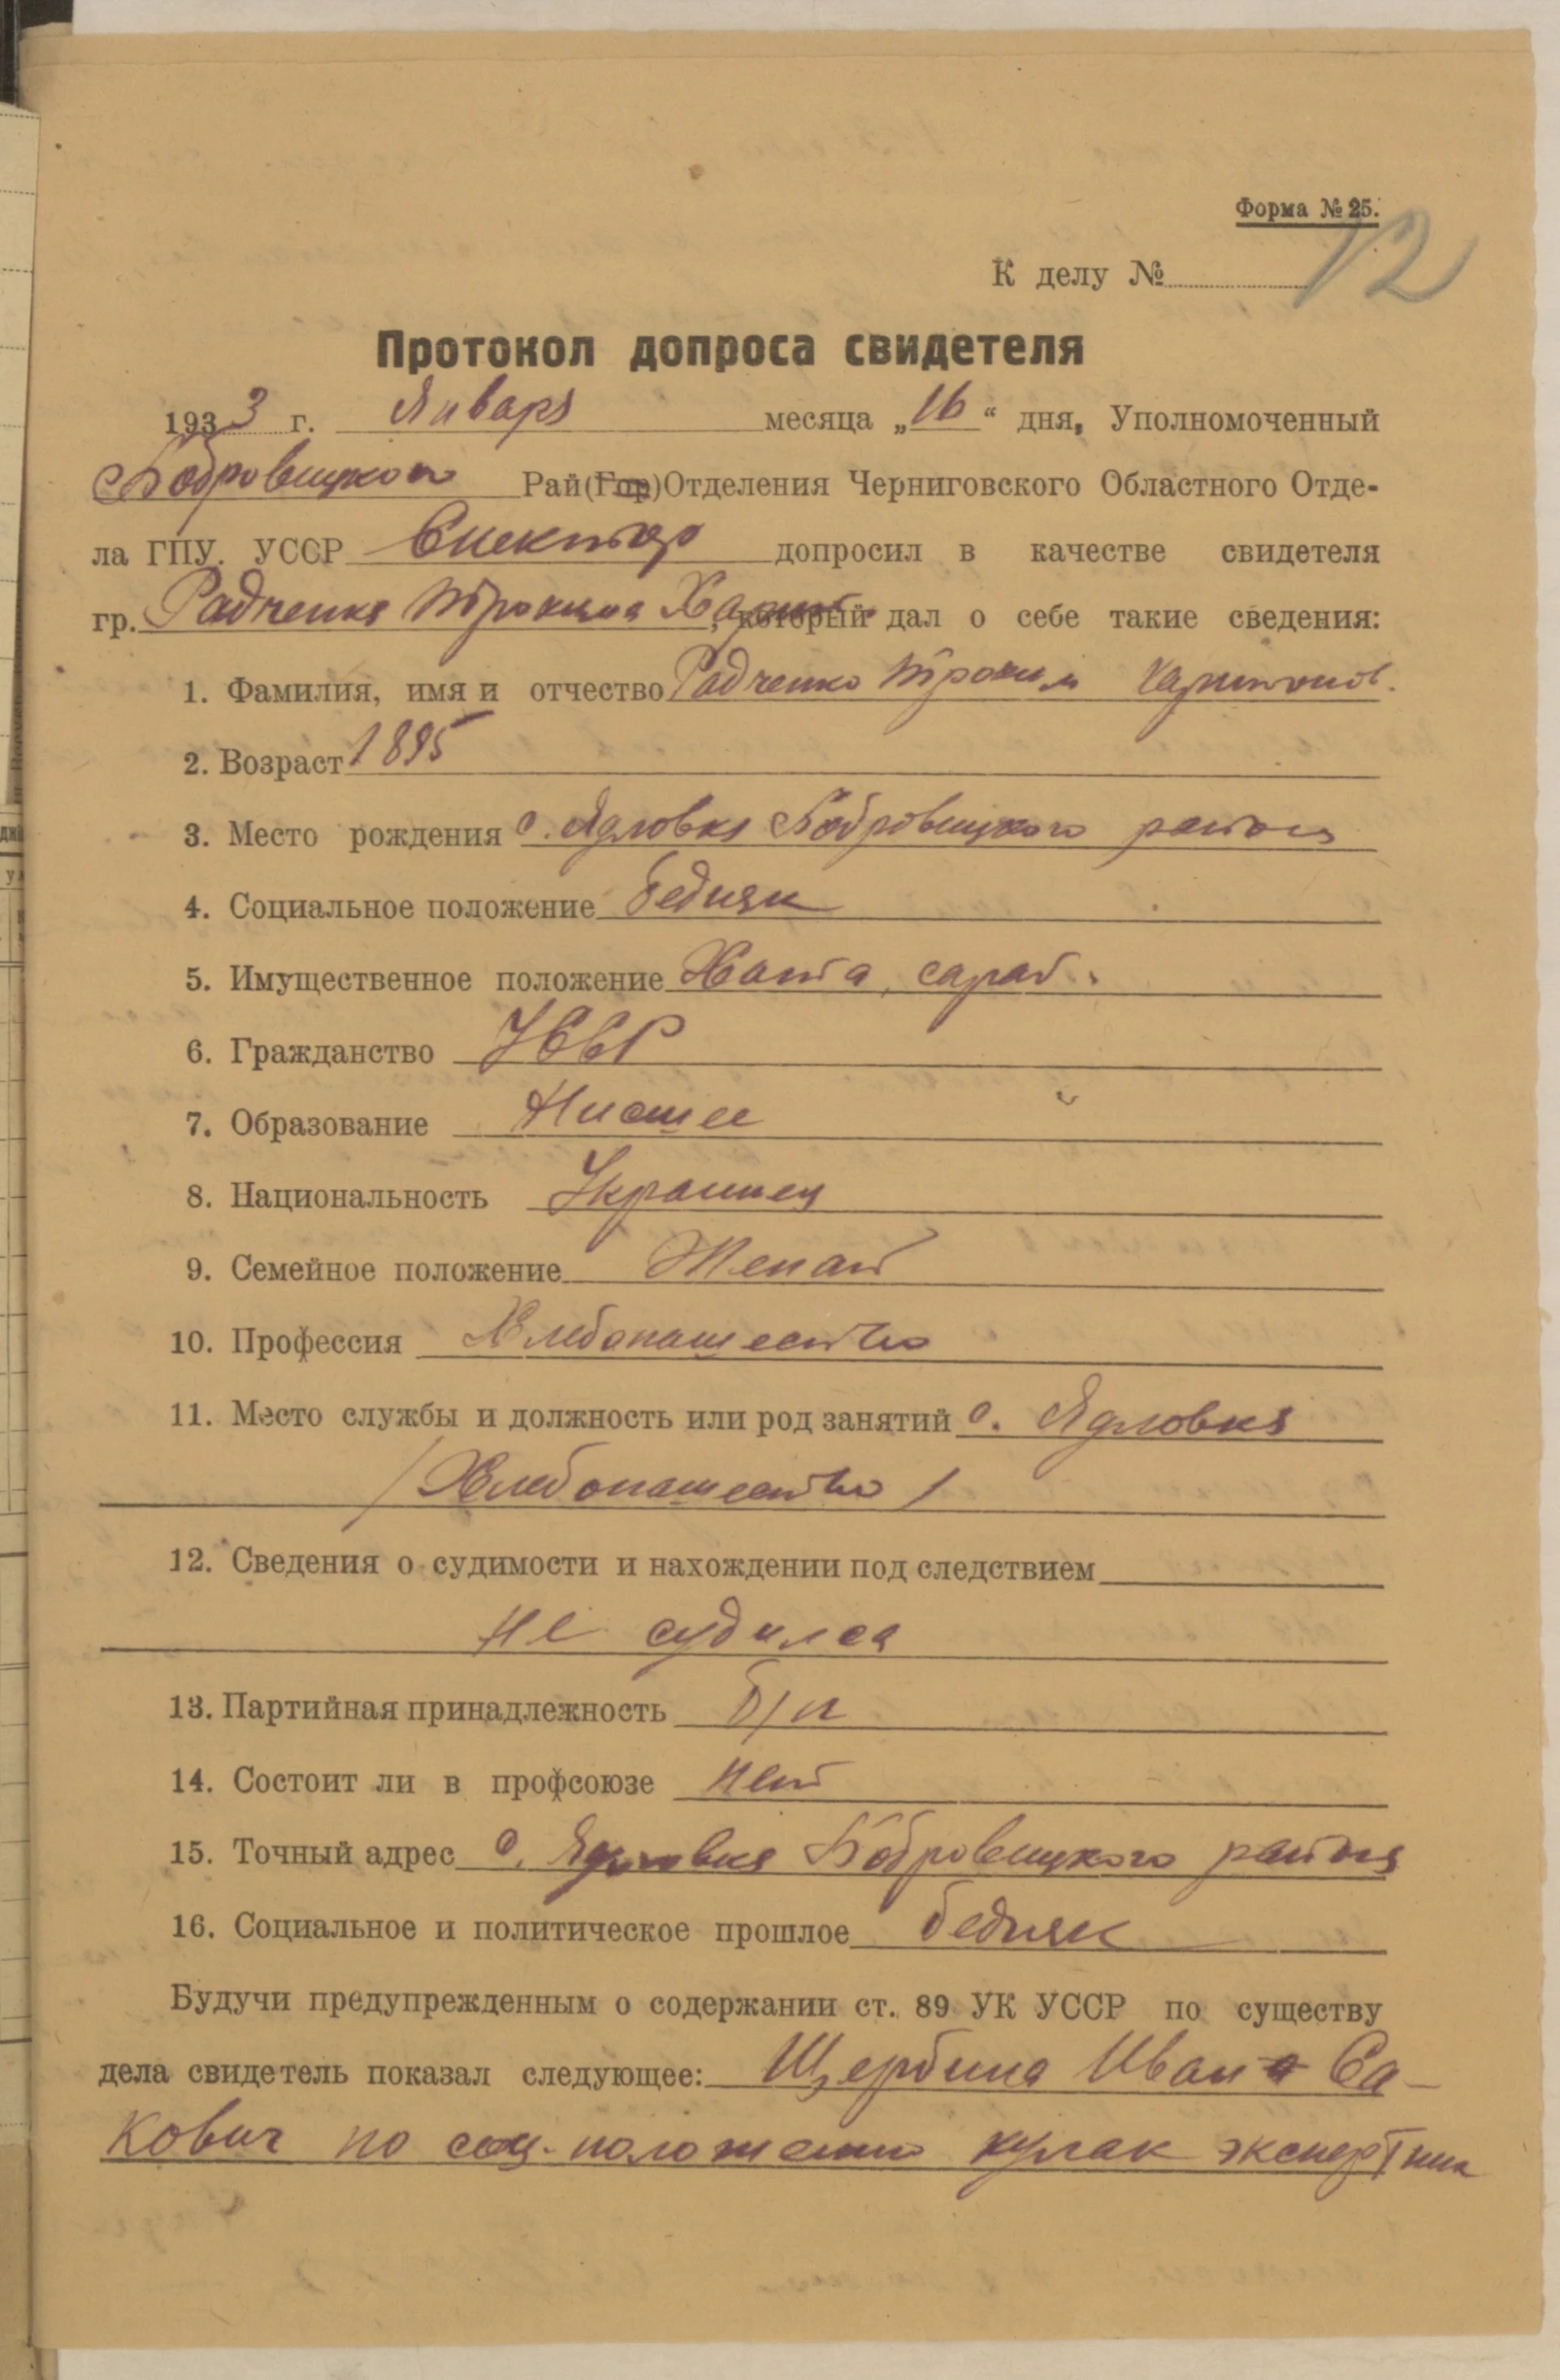 Форма № 25.
К делу № 12
Протокол допроса свидетеля
1933 г. Января месяца „16“ дня, Уполномоченный
Бобровицкого Рай(Гор)Отделения Черниговского Областного Отде-
ла ГПУ. УССР Спектор допросил в качестве свидетеля
гр. Радченка Трохима Харит, который дал о себе такие сведения:
1. Фамилия, имя и отчество Радченко Трохим Харитонов.
2. Возраст 1895
3. Место рождения с. Ядловка Бобровицкого района
4. Социальное положение Бедняк
5. Имущественное положение Хата, сарай.
6. Гражданство УССР
7. Образование Нисшее
8. Национальность Украинец
9. Семейное положение Женат
10. Профессия Хлебопашество
11. Место службы и должность или род занятий с. Ядловка
/Хлебопашество/
12. Сведения о судимости и нахождении под следствием
не судился
13. Партийная принадлежность б/п
14. Состоит ли в профсоюзе нет
15. Точный адрес с. Ядловка Бобровицкого района
16. Социальное и политическое прошлое бедняк
Будучи предупрежденным о содержании ст. 89 УК УССР по существу
дела свидетель показал следующее: Щербина Иван Са-
кович по соц-положению кулак экспертник